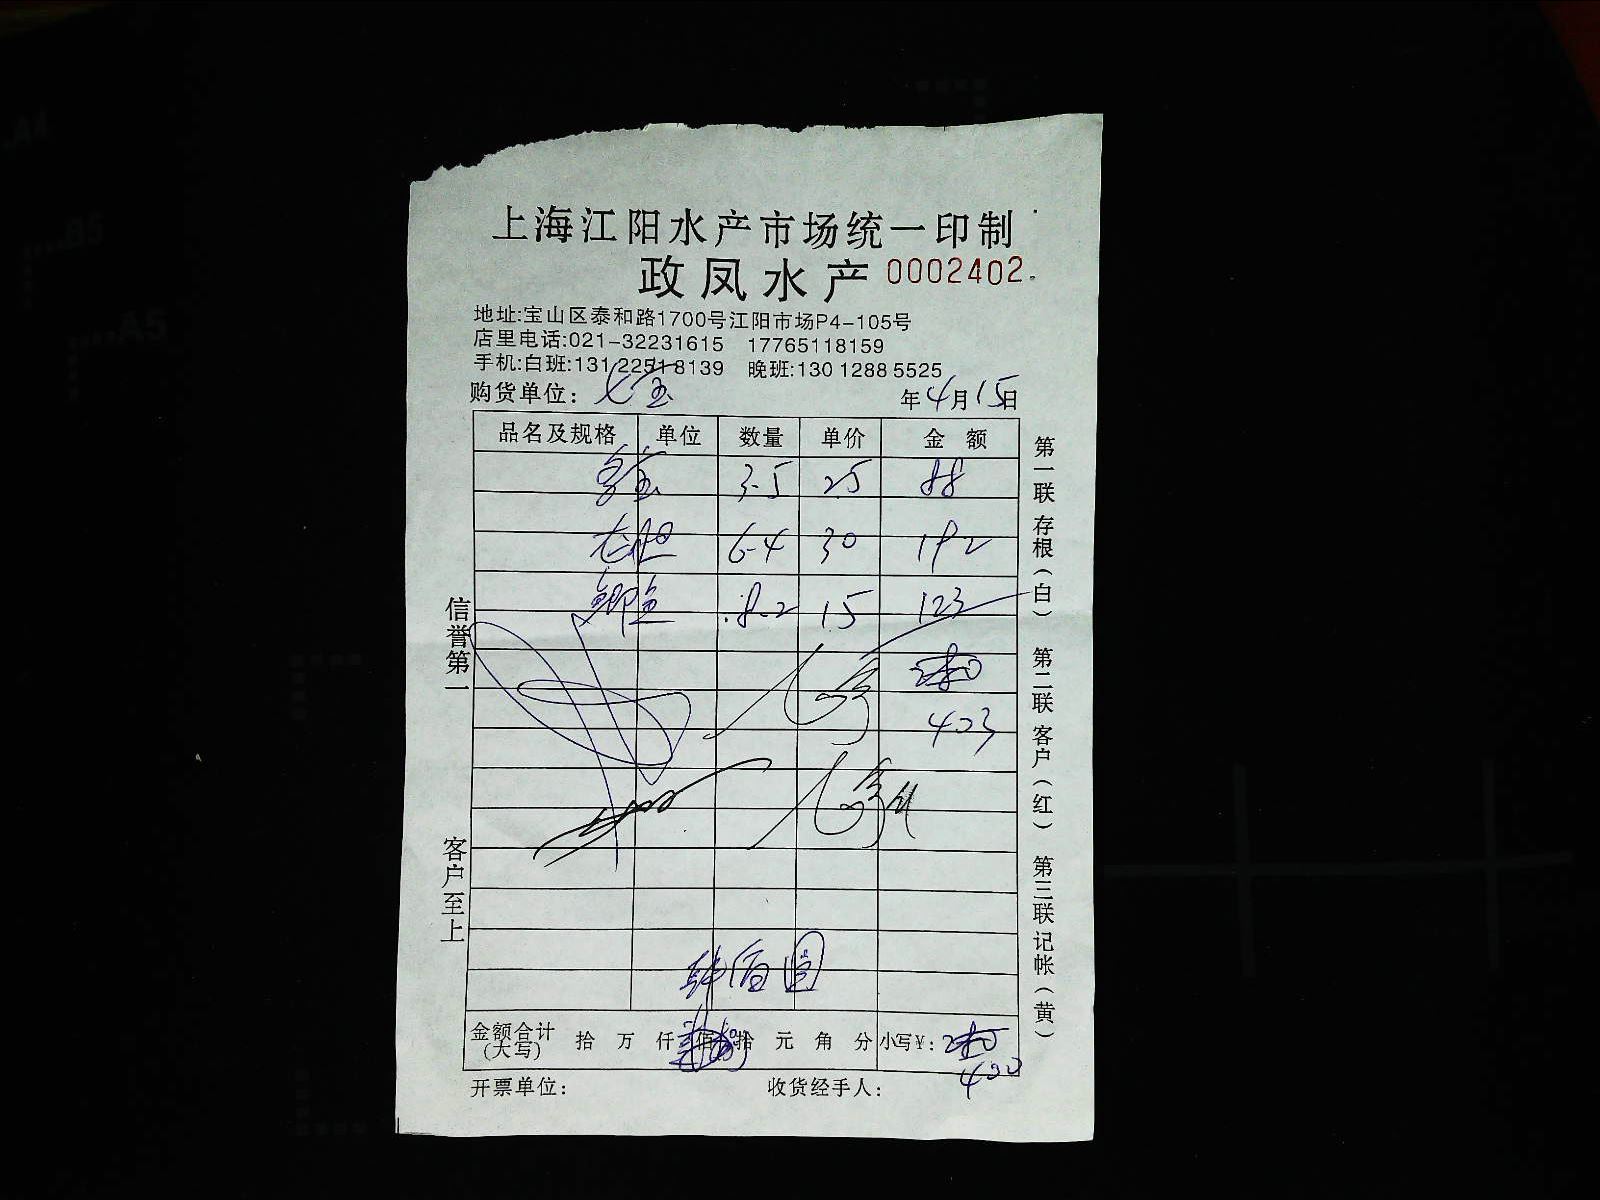 上海江阳水产市场统一印制
政凤水产 0002402
地址:宝山区泰和路1700号江阳市场P4-105号
店里电话:021-32231615 17765118159
手机:白班:131 2251 8139 晚班:130 1288 5525
购货单位: 七宝 年4月15日
品名及规格 单位 数量 单价 金额
3.5 25 88
6.4 30 192
鲫鱼 8.2 15 123
403
肆佰圆
金额合计(大写) 拾 万 仟 佰 拾 元 角 分 小写¥:
400
开票单位: 收货经手人:
信誉第一 客户至上
第一联存根(白) 第二联客户(红) 第三联记帐(黄)